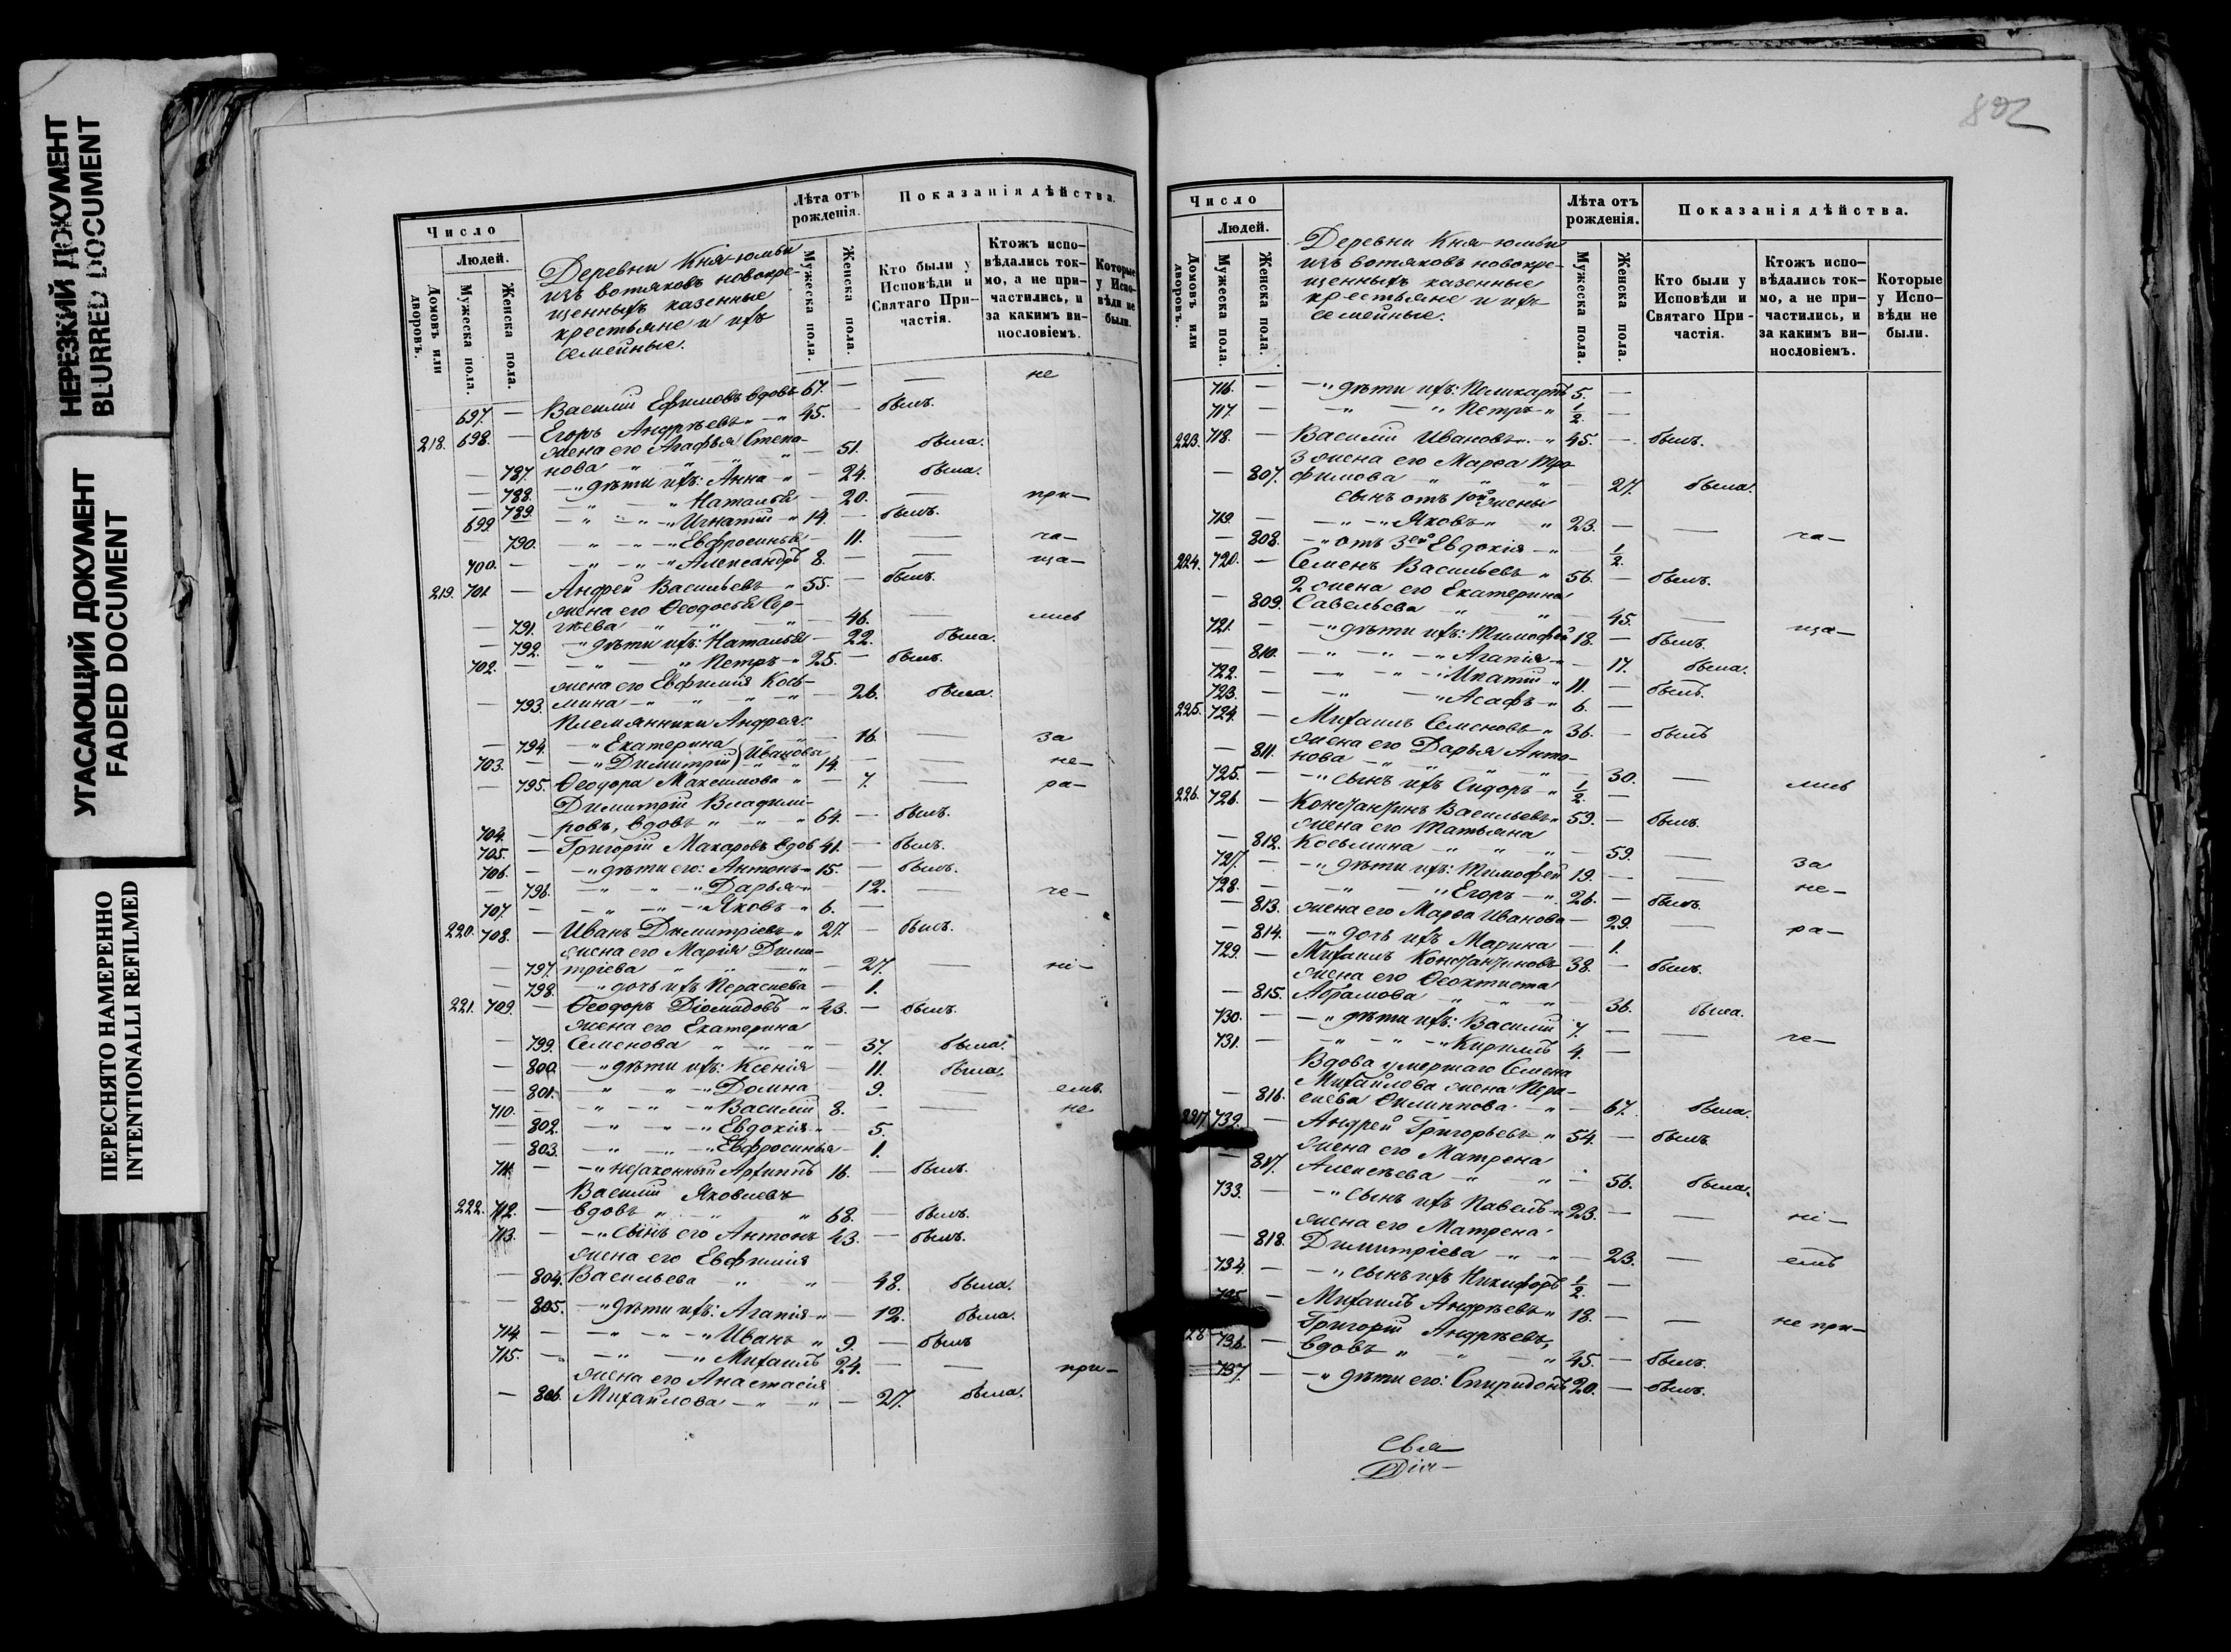 НЕРЕЗКИЙ ДОКУМЕНТ
BLURRED DOCUMENT
УГАСАЮЩИЙ ДОКУМЕНТ
FADED DOCUMENT
ПЕРЕСНЯТО НАМЕРЕННО
INTENTIONALLI REFILMED
Число
Людей.
Домовъ или дворовъ.
Мужеска пола.
Женска пола.
Деревни Кня-юмьи
изъ вотяковъ новокре-
щенныхъ казенные
крестьяне и ихъ
семейные.
Лѣта отъ рожденія.
Мужеска пола.
Женска пола.
Показанія дѣйства.
Кто были у Исповѣди и Святаго При-частія.
Ктожъ испо-вѣдались ток-мо, а не при-частились, и за какимъ ви-нословіемъ.
Которые у Испо-вѣди не были.
697. — Василій Ефимовъ вдовъ 67. — — не
218. 698. — Егоръ Андрѣевъ 45. — былъ.
жена его Агафья Степа-
— 787. нова — 51. была.
— 788. — дѣти ихъ: Анна — 24. была.
— 789. Наталья — 20. — при-
699. — Игнатій 14. — былъ.
790. Евфросинья — 11. — ча-
700. — Александръ 8. — — ща-
219. 701. — Андрей Васильевъ 55. — былъ.
жена его Ѳеодосья Сер-
— 791. гѣева — 46. — лись
— 792. — дѣти ихъ: Наталья — 22. была.
702. — Петръ 25. — былъ.
жена его Евфимія Кось-
— 793. мина — 26. была.
Племянники Андрея:
— 794. — Екатерина — 16. — за
703. — Димитрій } Ивановы 14. — — не-
— 795. Ѳеодора Максимова — 7. — ра-
Димитрій Владими-
704. — ровъ, вдовъ 64. — былъ.
705. — Григорій Макаровъ вдов 41. — былъ.
706. — дѣти его: Антонъ 15. — былъ.
— 796. Дарья — 12. — че-
707. — Яковъ 6. —
220. 708. — Иванъ Димитріевъ 27. — былъ.
жена его Марія Дими-
— 797. тріева — 27. — ні-
— 798. — дочь ихъ Параскева — 1.
221. 709. — Ѳеодоръ Діомидовъ 43. — былъ.
жена его Екатерина
— 799. Семенова — 37. была.
— 800. — дѣти ихъ: Ксенія — 11. была.
— 801. Домна 9. — емъ
710. — Василій 8. — — не
— 802. Евдокія — 5.
— 803. Евфросинья — 1.
711. — незаконный Архиппъ 16. — былъ.
Василій Яковлевъ
222. 712. — вдовъ 68. — былъ.
713. — сынъ его Антонъ 43. — былъ.
жена его Евфимія
— 804. Васильева — 48. была.
— 805. — дѣти ихъ: Агапія — 12. была.
714. — Иванъ 9. — былъ
715. — Михаилъ 24. — — при-
жена его Анастасія
— 806. Михайлова — 27. была.
802
Число
Людей.
Домовъ или дворовъ.
Мужеска пола.
Женска пола.
Деревни Кня-юмьи
изъ вотяковъ новокре-
щенныхъ казенные
крестьяне и ихъ
семейные.
Лѣта отъ рожденія.
Мужеска пола.
Женска пола.
Показанія дѣйства.
Кто были у Исповѣди и Святаго При-частія.
Ктожъ испо-вѣдались ток-мо, а не при-частились, и за какимъ ви-нословіемъ.
Которые у Испо-вѣди не были.
716. — дѣти ихъ: Поликарпъ 5. —
717. — Петръ ½ —
223. 718. — Василій Ивановъ 45. — былъ.
3 жена его Марѳа Тро-
— 807. фимова — 27. была.
сынъ отъ 1ой жены
719. — Яковъ 23. — — ча-
— 808. — отъ 3ей Евдокія — ½.
224. 720. — Семенъ Васильевъ 56. — былъ.
2 жена его Екатерина
— 809. Савельева — 45. — ща-
721. — дѣти ихъ: Тимофей 18. — былъ.
— 810. Агапія — 17. была.
722. — Ипатій 11. — былъ.
723. — Асафъ 6. —
225. 724. — Михаилъ Семеновъ 36. — былъ
жена его Дарья Анто-
— 811. нова — 30. — лись
725. — сынъ ихъ Сидоръ ½. —
226. 726. — Константинъ Васильевъ 59. — былъ.
жена его Татьяна
— 812. Косьмина — 59. — за
727. — дѣти ихъ: Тимофей 19. — — не-
728. — Егоръ 26. — былъ.
— 813. жена его Марѳа Иванова — 29. — ра-
— 814. — дочь ихъ Марина — 1.
729. — Михаилъ Константиновъ 38. — былъ.
жена его Ѳеоктиста
— 815. Абрамова — 36. была.
730. — дѣти ихъ: Василій 7. — — че-
731. — Кирилъ 4. —
Вдова умершаго Семена
Михайлова жена Пара-
— 816. скева Филиппова — 67. была.
227. 732. — Андрей Григорьевъ 54. — былъ
жена его Матрена
— 817. Алексѣева — 56. была.
733. — сынъ ихъ Павелъ 23. — — ні-
жена его Матрена
— 818. Димитріева — 23. — емъ
734. — сынъ ихъ Никифоръ ½. —
735. — Михаилъ Андрѣевъ 18. — — не при-
Григорій Андрѣевъ,
228. 736. — вдовъ 45. — былъ.
737. — дѣти его: Спиридонъ 20. — былъ.
Свя
Діа-